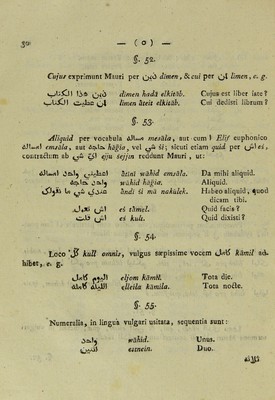 30 — ( 0 ) —
§. 52.
Cujus exprimunt Mauri per دمن dimen, & cui per لمن limen, e. g.
دمن هذا الكتاب dimen hadā elkitāb. Cujus est liber iste?
لمن عطيت الكتاب limen āteit elkitāb. Cui dedisti librum?
§. 53.
Aliquid per vocabula مسالة mesāla, aut cum ا Elif euphonico
امسالة emsāla, aut حاجة hāgia, vel شي ši; sicuti etiam quid per اش es,
contractum ab اي شي eju šejjin reddunt Mauri, ut:
اعطيني واحد امسالة ātini wāhid emsāla. Da mihi aliquid.
واحد حاجة wāhid hāgia. Aliquid.
عندي شي ما نقولك āndi ši mā nakulek. Habeo aliquid, quod
dicam tibi.
اش تعمل es tāmel. Quid facis?
اش قلت es kult. Quid dixisti?
§. 54.
Loco كل kull omnis, vulgus sæpissime vocem كامل kāmil ad-
hibet, e. g.
اليوم كامل eljom kāmil. Tota die.
الليلة كاملة elleila kāmila. Tota nocte.
§. 55.
Numeralia, in linguà vulgari usitata, sequentia sunt:
واحد wāhid. Unus.
اثنين esnein. Duo.
ثلاثة